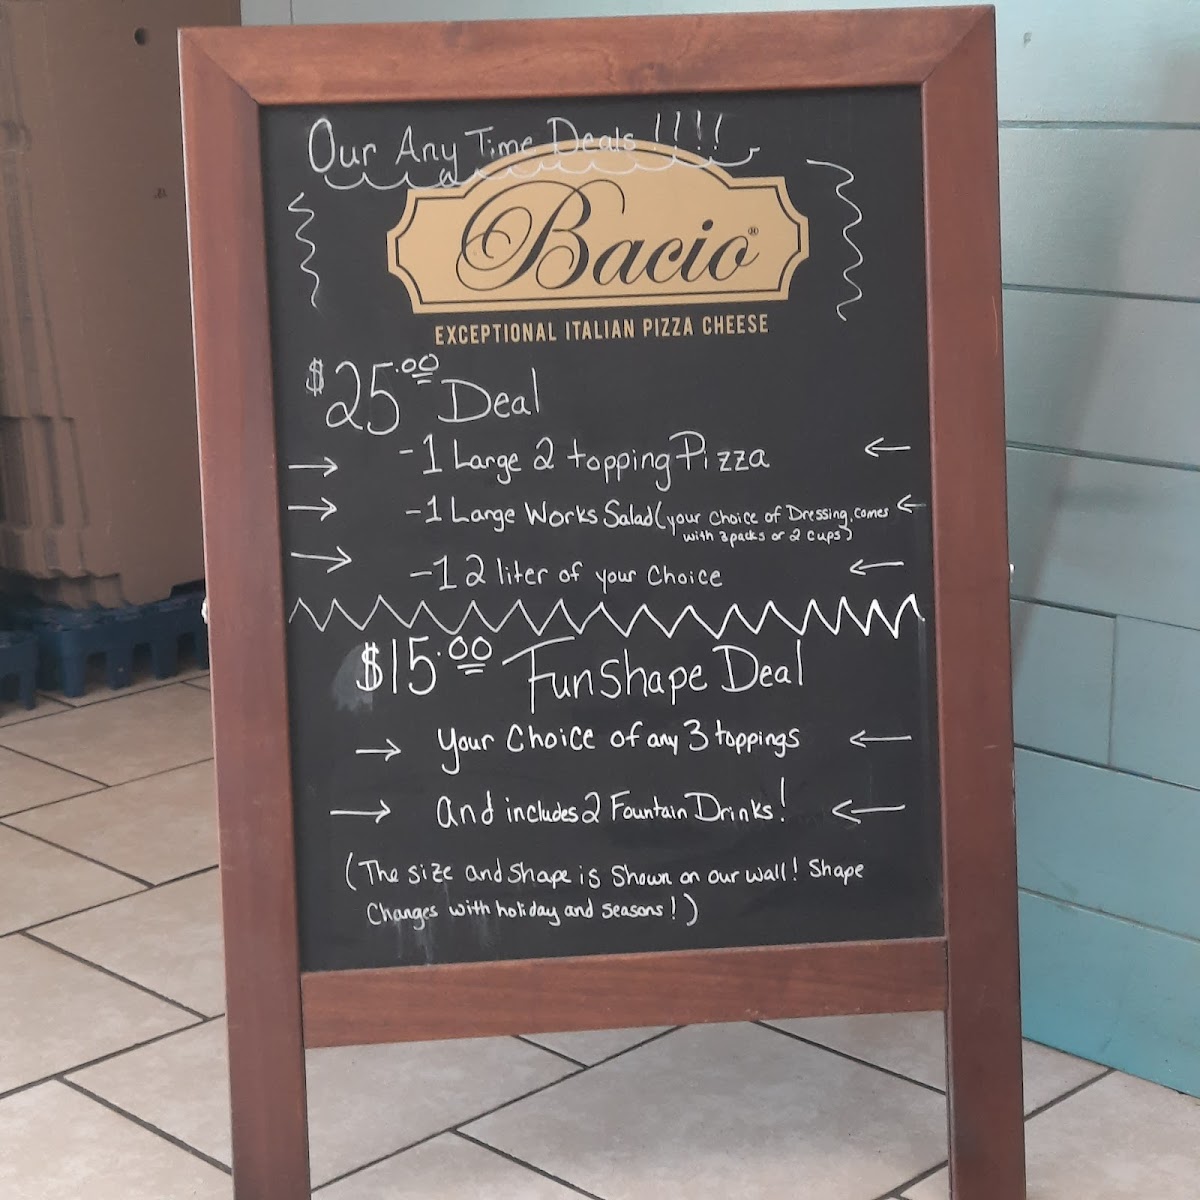 Our Any Time Deals!!!!
Bacio®
EXCEPTIONAL ITALIAN PIZZA CHEESE
$25.00 Deal
-1 Large 2 topping Pizza
-1 Large Works Salad (your Choice of Dressing, comes
with 3 packs or 2 cups)
-1 2 liter of your Choice
$15.00 Funshape Deal
your Choice of any 3 toppings
and includes 2 Fountain Drinks!
(The size and shape is shown on our wall! Shape
Changes with holiday and seasons!)